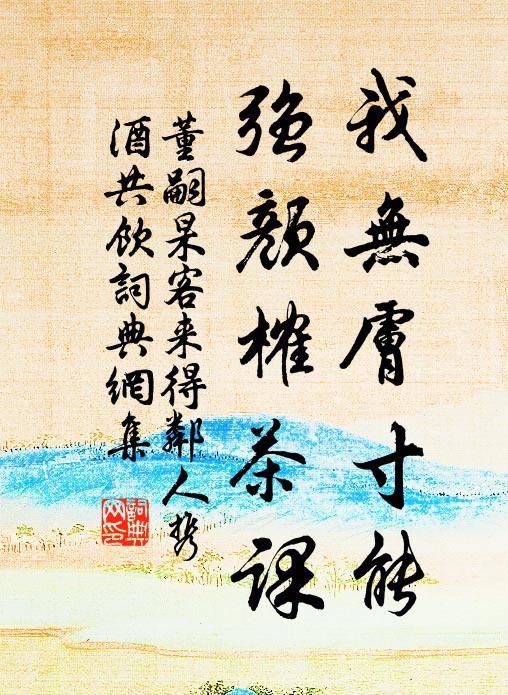 我無膚寸能
強顏榷茶課
董嗣杲客来得鄰人携
酒共飲詞典網集